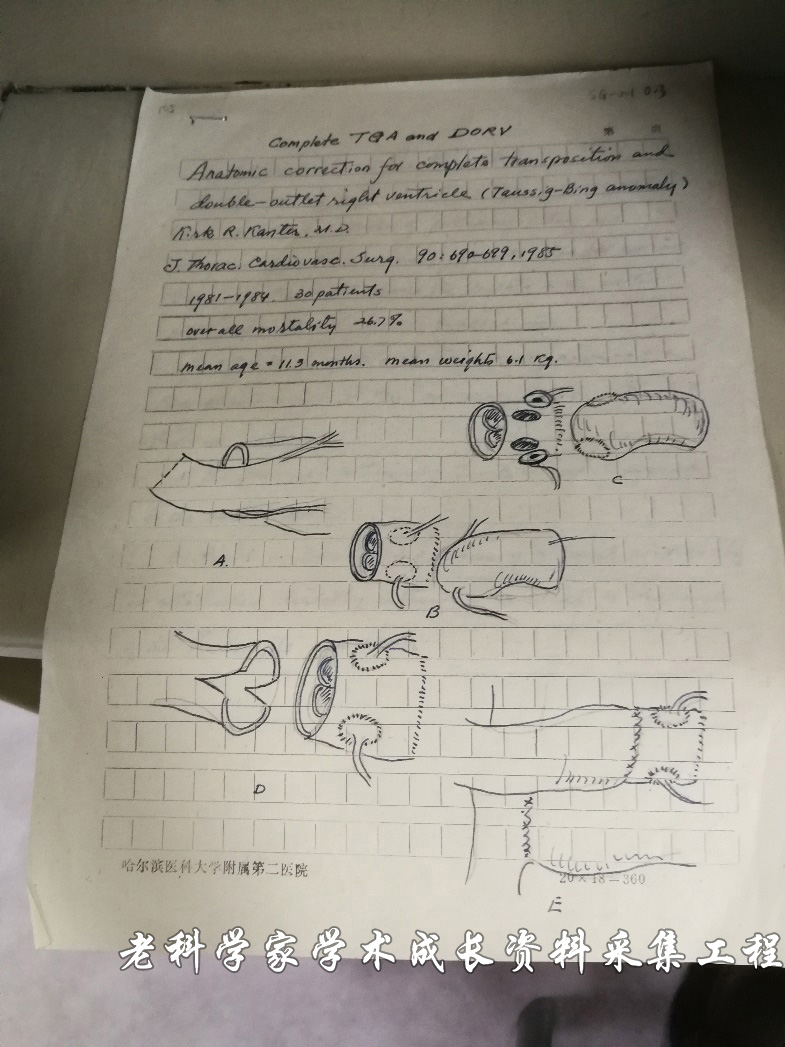 Complete TGA and DORV
第 页
Anatomic correction for complete transposition and
double-outlet right ventricle (Taussig-Bing anomaly)
Kirk R. Kanter, M.D.
J. Thorac. Cardiovasc. Surg. 90:690-699, 1985
1981-1984. 30 patients
over all mostality 26.7%
mean age = 11.3 months. mean weights 6.1 kg.
C
A.
B
D
哈尔滨医科大学附属第二医院
20×18=360
E
老科学家学术成长资料采集工程